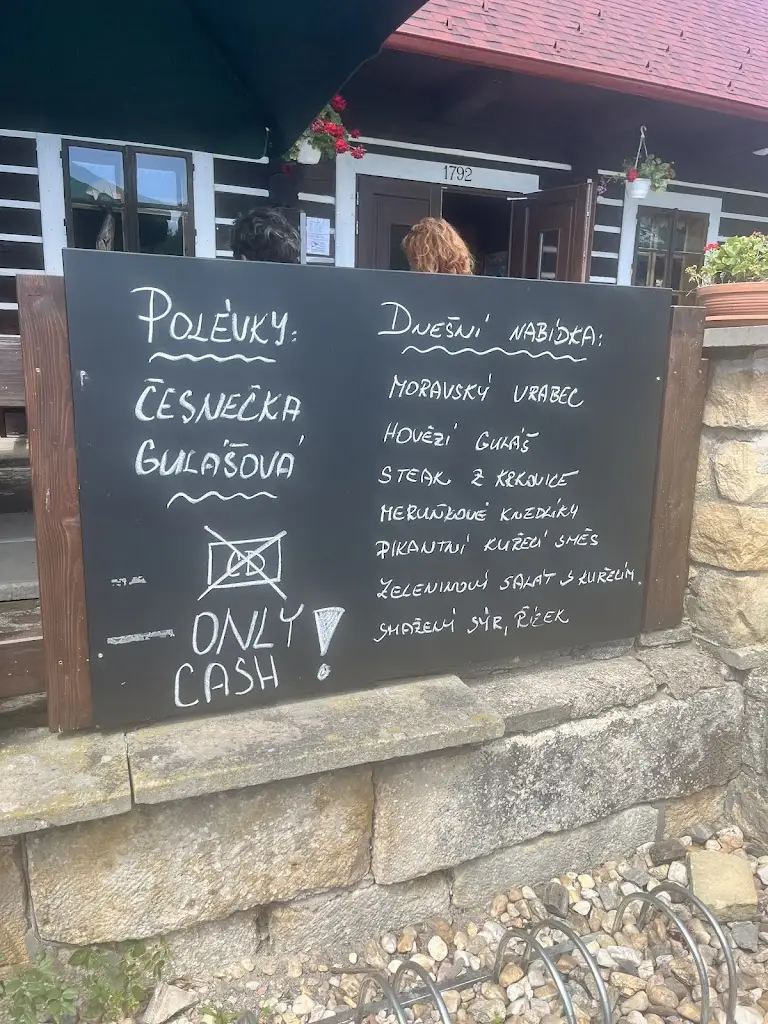 1792
POLÉVKY:
ČESNEČKA
GULÁŠOVÁ
ONLY
CASH !
DNEŠNÍ NABÍDKA:
MORAVSKÝ VRABEC
HOVĚZÍ GULÁŠ
STEAK Z KRKOVICE
MERUŇKOVÉ KNEDLÍKY
PIKANTNÍ KUŘECÍ SMĚS
ZELENINOVÝ SALÁT S KUŘECÍM.
SMAŽENÝ SÝR, ŘÍZEK